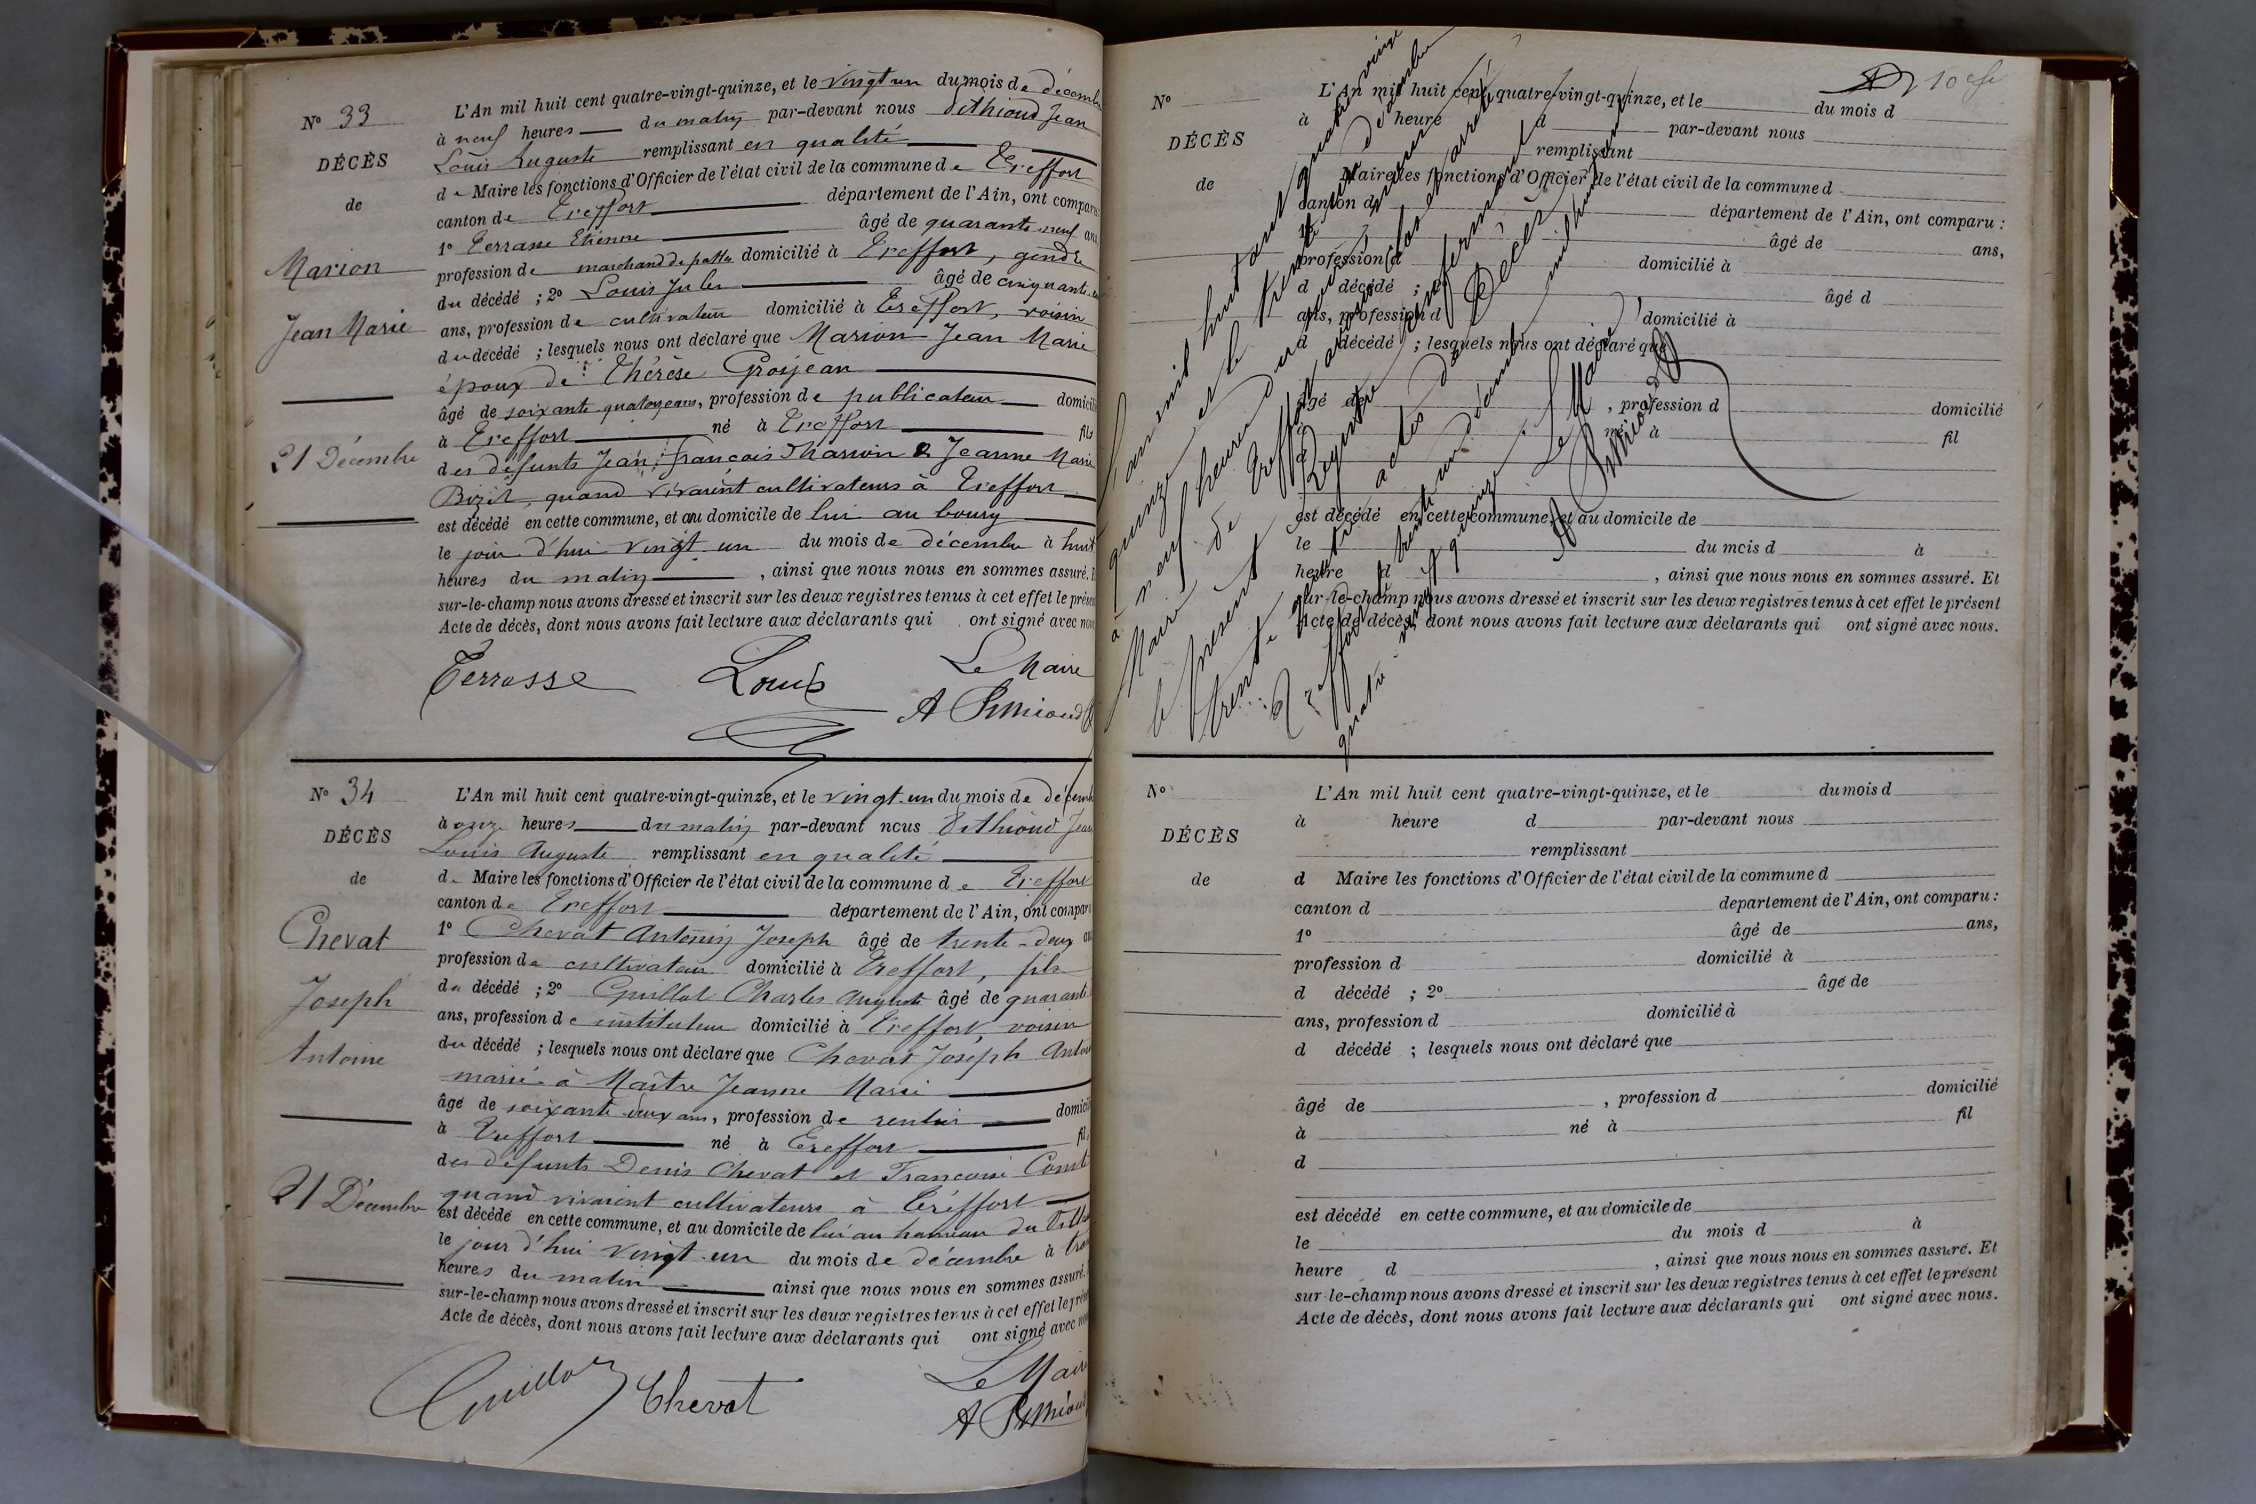 N° 33
DÉCÈS
de
Marion
Jean Marie
21 Décembre
L'An mil huit cent quatre-vingt-quinze, et le vingt un du mois de décembre
à neuf heures du matin par-devant nous Béthioud Jean
Louis Auguste remplissant en qualité
de Maire les fonctions d'Officier de l'état civil de la commune de Treffort
canton de Treffort département de l'Ain, ont comparu
1° Terrasse Etienne âgé de quarante-neuf ans
profession de marchand de pattes domicilié à Treffort, gendre
du décédé ; 2° Louis Jules âgé de cinquante
ans, profession de cultivateur domicilié à Treffort, voisin
du décédé ; lesquels nous ont déclaré que Marion Jean Marie
époux de Thérèse Grosjean
âgé de soixante-quatorze ans, profession de publicateur domicilié
à Treffort né à Treffort fils
des défunts Jean François Marion & Jeanne Marie
Bozit, quand vivaient cultivateurs à Treffort
est décédé en cette commune, et au domicile de lui au bourg
le jour d'hui vingt-un du mois de décembre à huit
heures du matin, ainsi que nous nous en sommes assuré.
sur-le-champ nous avons dressé et inscrit sur les deux registres tenus à cet effet le présent
Acte de décès, dont nous avons fait lecture aux déclarants qui ont signé avec nous
Terrasse Louis Le Maire
N° 34
DÉCÈS
de
Chevat
Joseph
Antoine
21 Décembre
L'An mil huit cent quatre-vingt-quinze, et le vingt-un du mois de décembre
à onze heures du matin par-devant nous Béthioud Jean
Louis Auguste remplissant en qualité
de Maire les fonctions d'Officier de l'état civil de la commune de Treffort
canton de Treffort département de l'Ain, ont comparu
1° Chevat Antonin Joseph âgé de trente-deux ans
profession de cultivateur domicilié à Treffort, fils
du décédé ; 2° Guillot Charles Auguste âgé de quarante
ans, profession de instituteur domicilié à Treffort, voisin
du décédé ; lesquels nous ont déclaré que Chevat Joseph Antoine
marié à Maître Jeanne Marie
âgé de soixante deux ans, profession de rentier domicilié
à Treffort né à Treffort fils
des défunts Denis Chevat et Françoise Comte
quand vivaient cultivateurs à Treffort
est décédé en cette commune, et au domicile de lui au hameau du
le jour d'hui vingt-un du mois de décembre à
heures du matin ainsi que nous nous en sommes assuré.
sur-le-champ nous avons dressé et inscrit sur les deux registres tenus à cet effet le présent
Acte de décès, dont nous avons fait lecture aux déclarants qui ont signé avec nous
Guillot Chevat Le Maire
N°
DÉCÈS
de
L'An mil huit cent quatre-vingt-quinze, et le du mois d
à heure d par-devant nous
remplissant
Maire les fonctions d'Officier de l'état civil de la commune d
canton d département de l'Ain, ont comparu :
1° âgé de ans,
profession d domicilié à
d décédé ; âgé d
ans, profession d domicilié à
d décédé ; lesquels nous ont déclaré que
âgé de , profession d domicilié
né à fil
est décédé en cette commune, et au domicile de
le du mois d à
heure d , ainsi que nous nous en sommes assuré. Et
sur-le-champ nous avons dressé et inscrit sur les deux registres tenus à cet effet le présent
Acte de décès, dont nous avons fait lecture aux déclarants qui ont signé avec nous.
L'an mil huit cent quatre vingt
quinze et le trente un décembre
à neuf heures du
Maire de Treffort avons clos et arrêté
le présent Registre renfermant
trente quatre actes de Décès
Treffort trente un décembre mil huit cent
quatre vingt quinze. Le Maire
N°
DÉCÈS
de
L'An mil huit cent quatre-vingt-quinze, et le du mois d
à heure d par-devant nous
remplissant
d Maire les fonctions d'Officier de l'état civil de la commune d
canton d département de l'Ain, ont comparu :
1° âgé de ans,
profession d domicilié à
d décédé ; 2° âgé de
ans, profession d domicilié à
d décédé ; lesquels nous ont déclaré que
âgé de , profession d domicilié
à né à fil
d
est décédé en cette commune, et au domicile de
le du mois d à
heure d , ainsi que nous nous en sommes assuré. Et
sur-le-champ nous avons dressé et inscrit sur les deux registres tenus à cet effet le présent
Acte de décès, dont nous avons fait lecture aux déclarants qui ont signé avec nous.